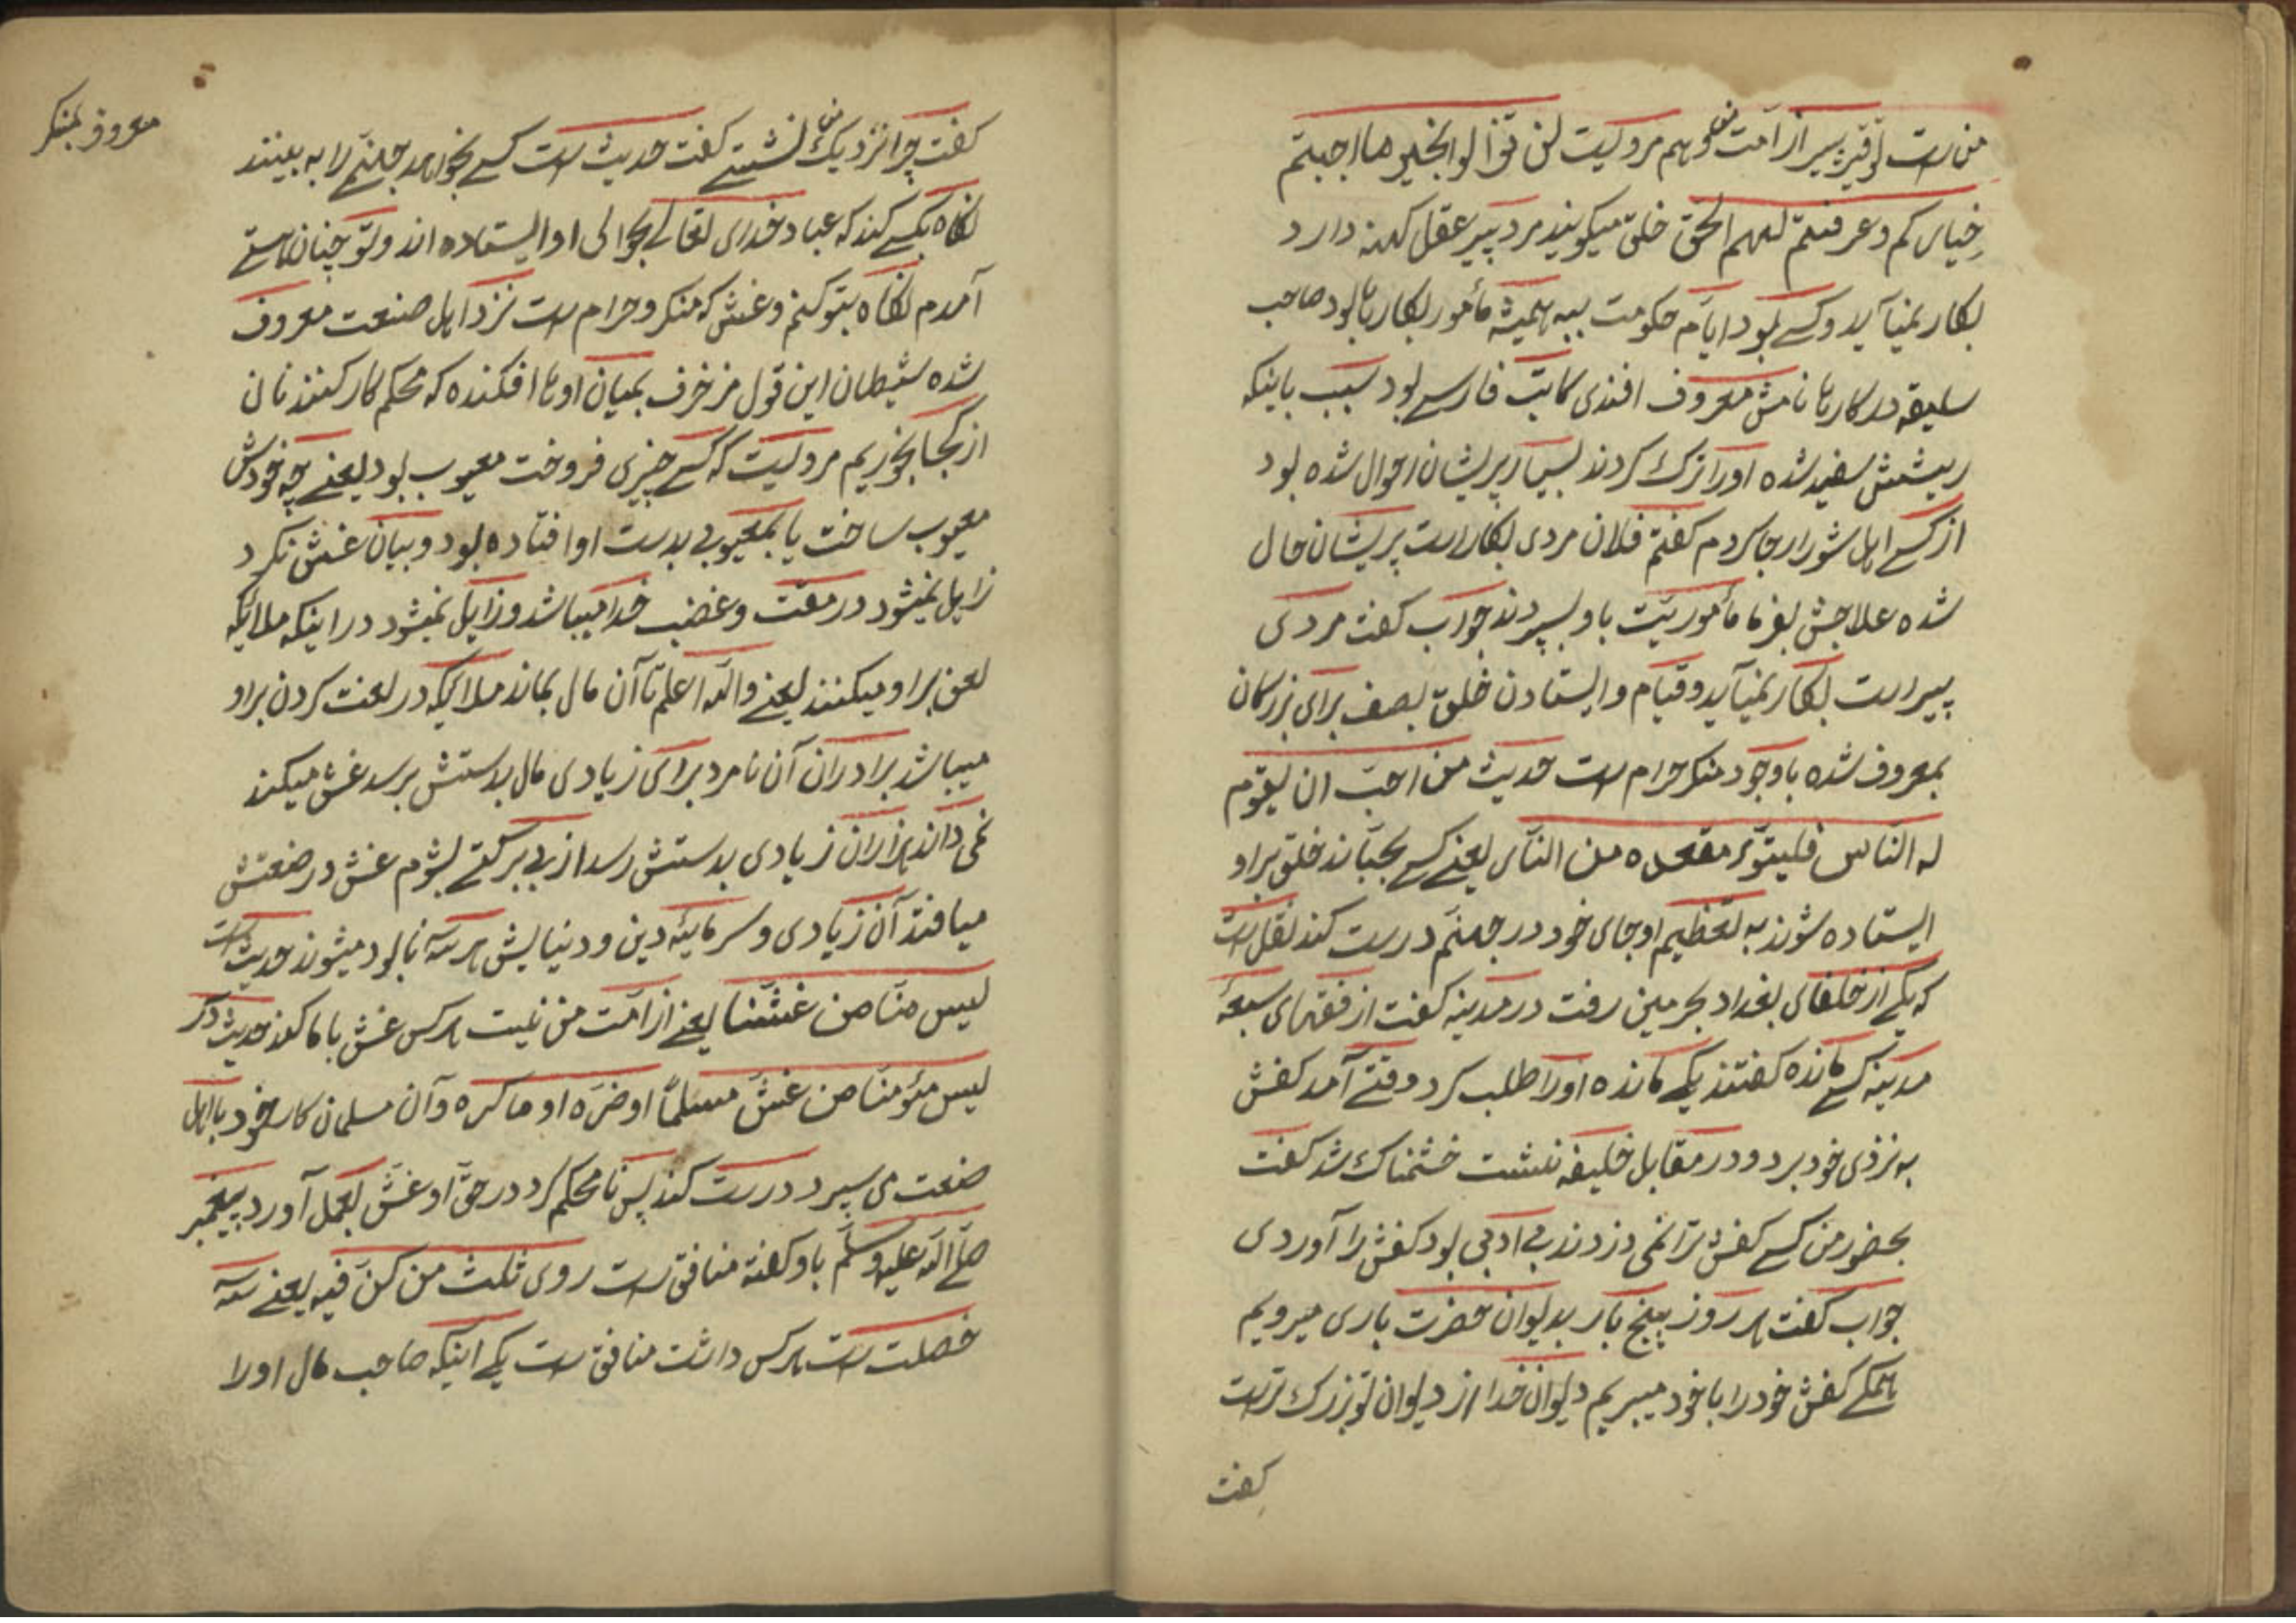 من است توقیر پیر از امت منو هم مرویست لن تزالوا بخیر ما احببتم
خیارکم وعرفتم لهم الحق خلق میکویند مرد پیر عقل کهنه دارد
بکار نمیآید وکسی بود ایام حکومت ببه همیشه مأمور بکارها بود صاحب
سلیقه در کارها نامش معروف افندی کاتب فارسی بود سبب باینکه
ریشش سفید شده اورا ترک کردند بسیار پریشان احوال شده بود
از کسی اهل شورا رجا کردم کفتم فلان مردی بکار است پریشان حال
شده علاجش بفرما مأموریت باو بسپردند جواب کفت مردی
پیر است بکار نمیآید وقیام وایستادن خلق بصف برای بزرکان
بمعروف شده باوجود منکر حرام است حدیث من احب ان یقوم
له الناس فلیتبوّء مقعده من النار یعنی کسی بخباند خلق براو
ایستاده شوند به تعظیم او جای خود در جهنم درست کند نقل است
که یکی از خلفای بغداد بحرمین رفت در مدینه کفت از فقهای سبعهٔ
مدینه کسی مانده کفتند یکی مانده اورا طلب کرد وقتی آمد کفش
به نزدی خود برد ودر مقابل خلیفه نشست خشمناک شد کفت
بحضور من کسی کفش ترا نمی دزدند بی ادبی بود کفش را آوردی
جواب کفت هر روز پنج بار بدیوان حضرت باری میرویم
همکی کفش خودرا باخود میبریم دیوان خدا از دیوان تو بزرک تر است
کفت
معروف بمنکر
کفت چرا نزدیک من نشستی کفت حدیث است کسی بخواهد جهنم را به بینند
نکاه بکسی کند که عباد خدای تعالی بحوالی او ایستاده اند وتو چنان هستی
آمدم نکاه بتو کنم وغش که منکر وحرام است نزد اهل صنعت معروف
شده شیطان این قول مزخرف بمیان اوها افکنده که محکم کار کنند نان
از کجا بخوریم مرویست که کسی چیزی فروخت معیوب بود یعنی چه خودش
معیوب ساخت یا بمعیوبی بدست او افتاده بود وبیان غش نکرد
زایل نمیشود در مقت وغضب خدا میباشد وزایل نمیشود در اینکه ملائیکه
لعن براو میکنند یعنی والله اعلم تا آن مال بماند ملائیکه در لعنت کردن براو
میباشد برادران آن نامرد برای زیادی مال بدستش برسد غش میکند
نمی داند هزاران زیادی بدستش رسد از بی برکتی بشوم غش در صنعتش
میافتد آن زیادی وسرمایئه دین ودنیایش هر سه نابود میشوند حدیث است
لیس منّا من غشّنا یعنی از امت من نیست هر کس غش باما کند حدیث دکر
لیس مؤمنا من غشّ مسلمًا او ضرّه او ماکره وآن مسلمان کار خود باهل
صنعت می سپرد درست کند پس نامحکم کرد در حق او غش بعمل آورد پیغمبر
صلی الله علیه وسلم باو کفته منافق است روی ثلث من کنّ فیه یعنی سه
خصلت است هر کس داشت منافق است یکی اینکه صاحب مال اورا